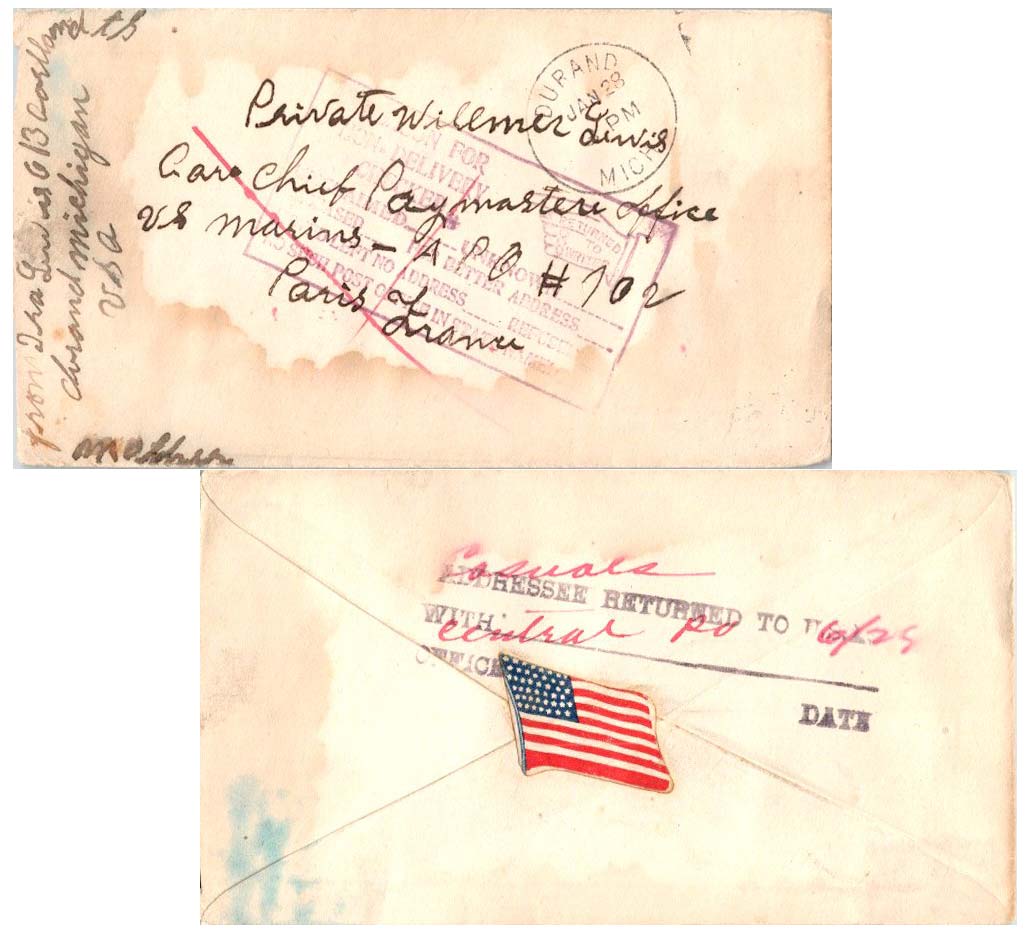 from Ira Lewis 613 Cortland th
durand michigan
USA
DURAND
JAN 28
PM
MICH
Private Willmer Lewis
Care Chief Paymasters Office
US Marins - A P O # 102
Paris France
FOR
DELIVERY
RETURNED
TO
WRITER
UNKNOWN
FOR BETTER ADDRESS
NO ADDRESS
NO SUCH POST OFFICE IN STATE NAMED
Casuals
ADDRESSEE RETURNED TO
WITH:
Central PO 6/25
OFFICE
DATE